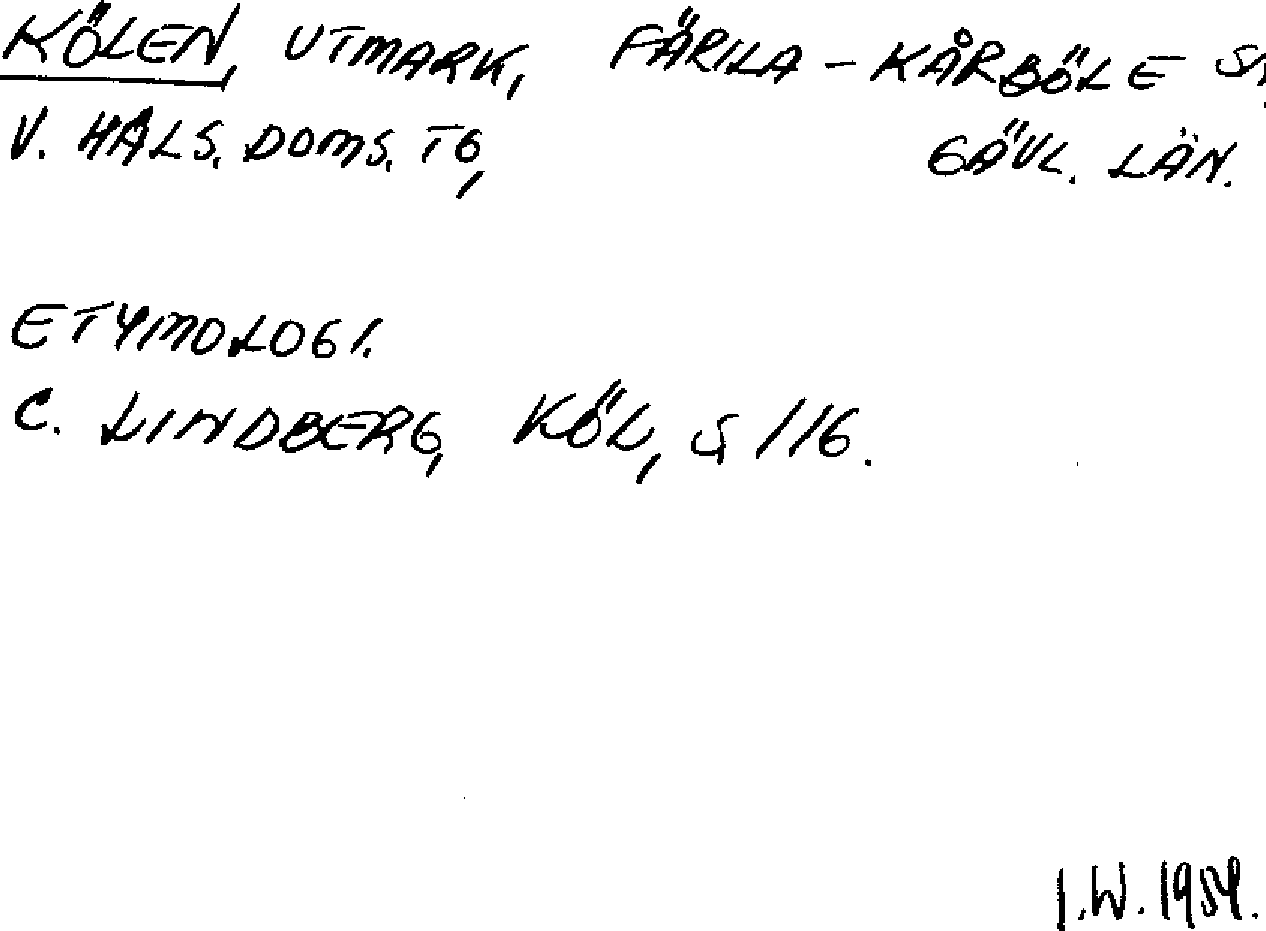 KÖLEN, UTMARK, FÄRILA - KÅRBÖLE SN.
V. HÄLS. DOMS. TG, GÄVL. LÄN.
ETYMOLOGI.
C. LINDBERG, KÖL, S 116.
I.W. 1984.